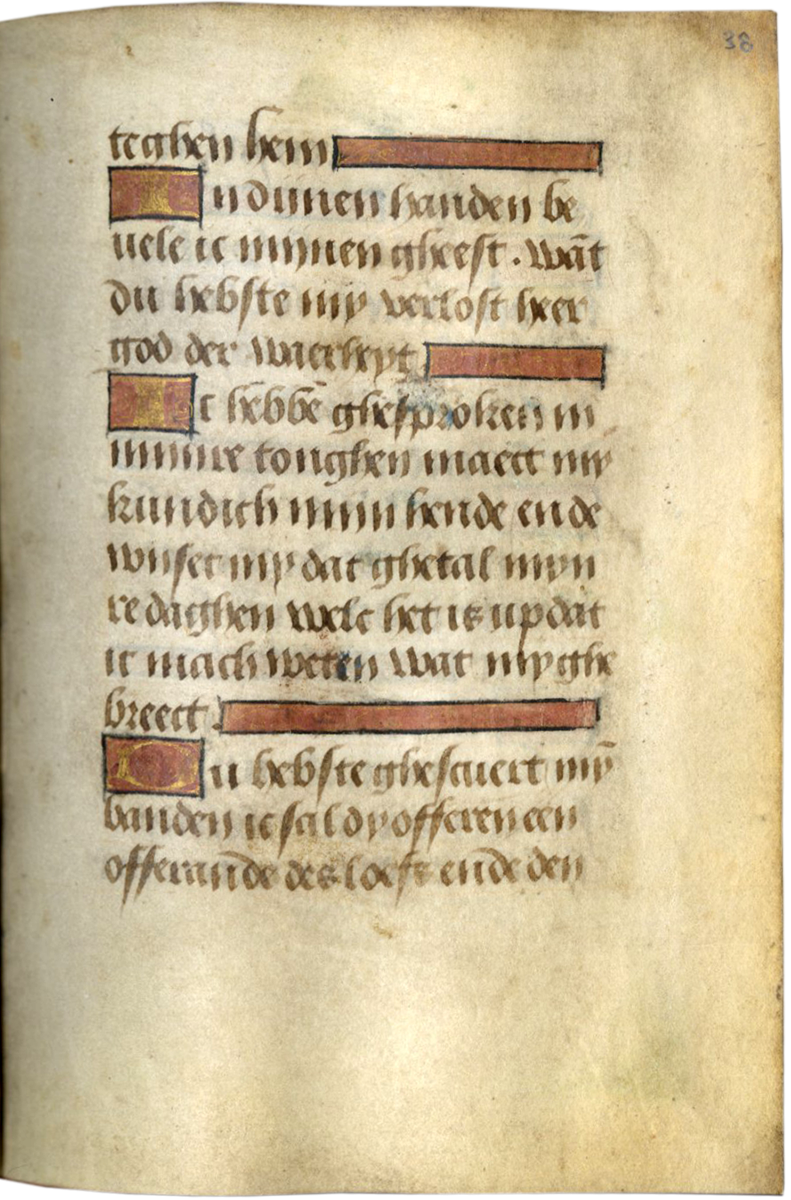 38
teghen hem
In dinen handen be
uele ic minen gheest. wāt
du hebste my verlost heer
god der waerheyt
Ic hebbē ghesproken in
minire tonghen maect my
kundich mijn hende ende
wijset my dat ghetal myn
re daghen welc het is up dat
ic mach weten wat my ghe
breect
Du hebste ghescuert mȳ
banden ic sal dy offeren een
offerande des loefs ende den